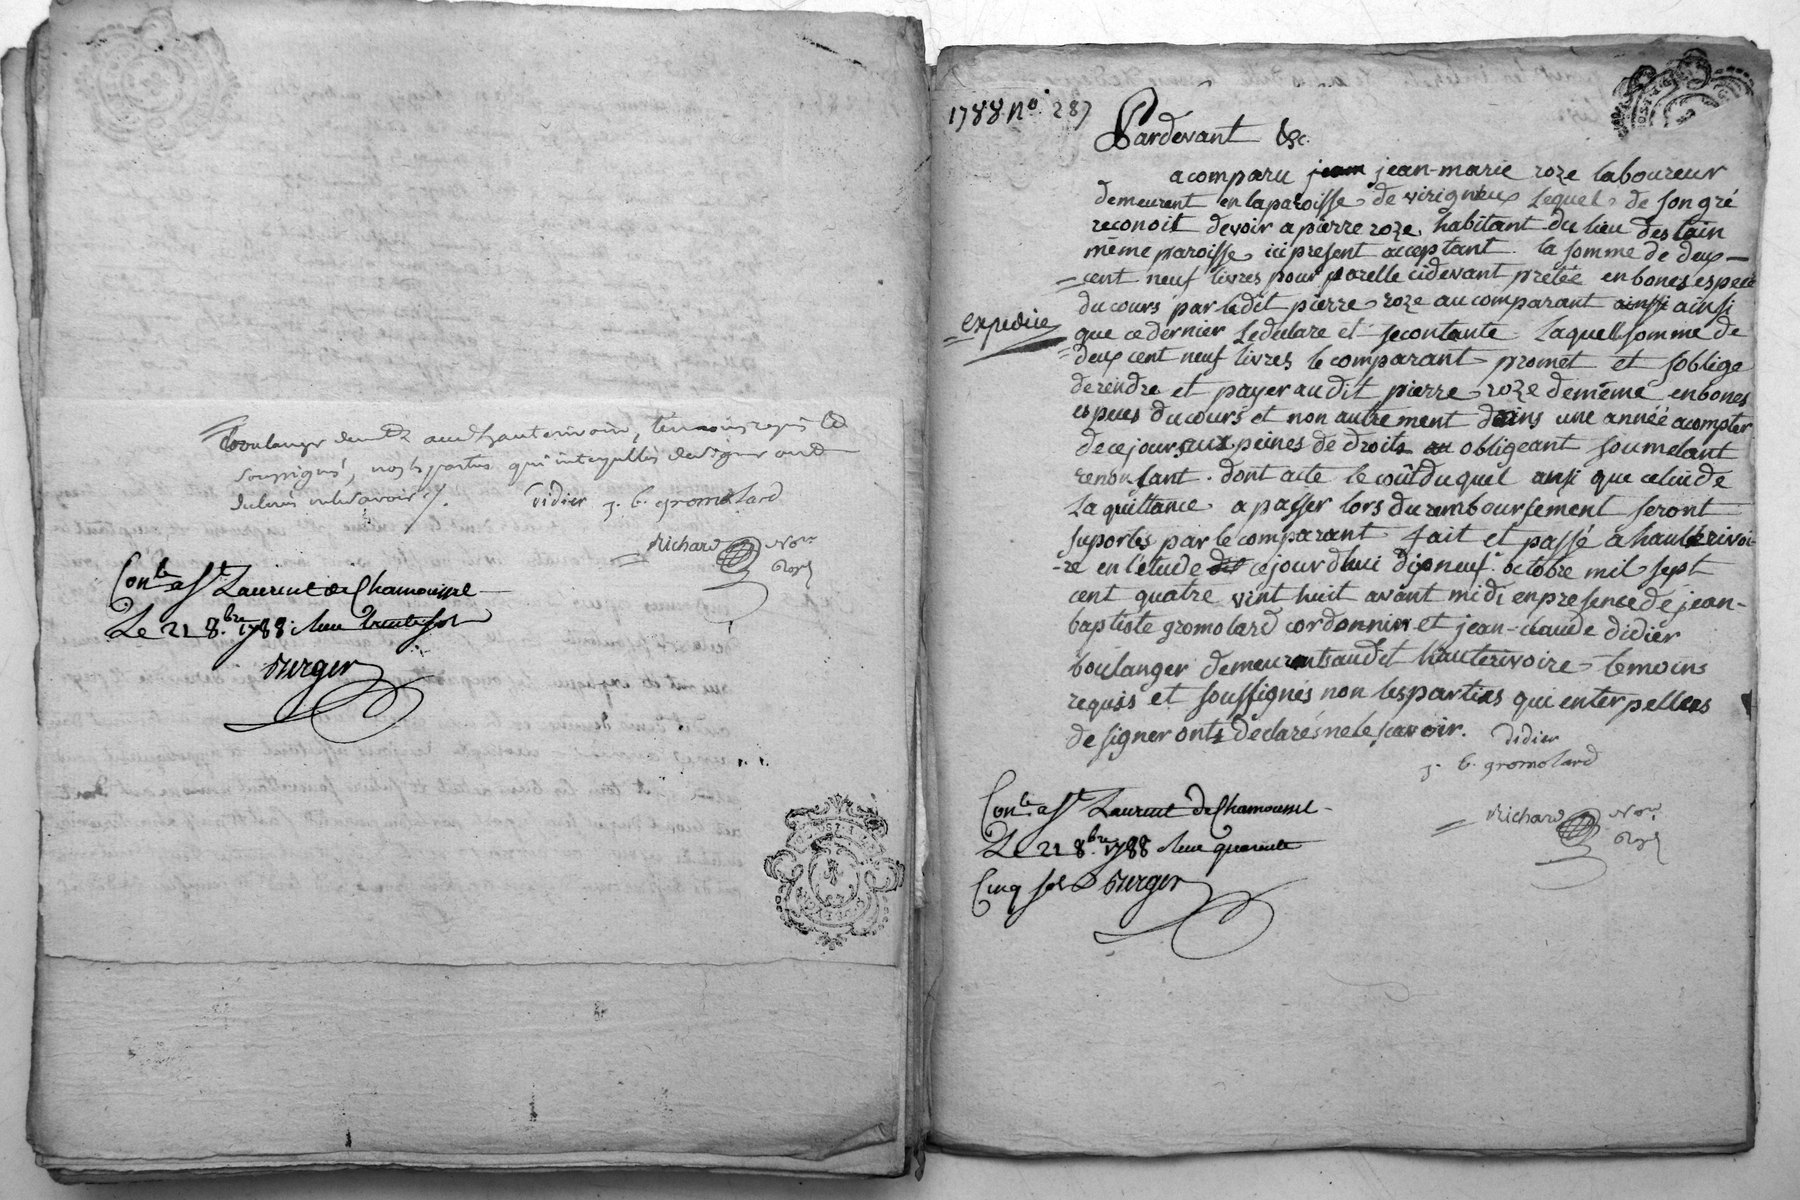 boulanger demt audt hauterivoire, temoins requis et
soussignés, non les parties qui interpellées de signer ont
declarés ne le scavoir ./.
Didier j. b. gromolard
Richard Nore
Royl
Conlé a St Laurent de Chamousset
Le 21 8.bre 1788
Burger
1788 no. 287
Pardevant &c.
expediée
a comparu jean-marie roze laboureur
demeurent en la paroisse de virigneux lequel de son gré
reconoit devoir a pierre roze habitant du lieu des tain
même paroisse ici present acceptant la somme de deux
cent neuf livres pour parelle cidevant prêtée en bones espece
du cours par ledit pierre roze au comparant ainsi
que ce dernier le declare et se contante laquell somme de
deux cent neuf livres le comparant promet et soblige
de rendre et payer audit pierre roze de même en bones
especes du cours et non autrement dans une année a compter
de ce jour aux peines de droits obligeant soumetant
renonsant. dont acte le coût du quel ansi que celui de
la quittance a passer lors du remboursement seront
suportés par le comparant fait et passé a hauterivoi-
-re en l'etude ce jourdhui dix neuf octobre mil sept
cent quatre vint huit avant midi en presence de jean-
baptiste gromolard cordonnier et jean-claude didier
boulanger demeurants audit hauterivoire temoins
requis et soussignés non les parties qui enterpellees
de signer onts déclarés ne le scavoir.
didier
j. b. gromolard
Richard Nore
Royl
Conlé a St Laurent de Chamousset
Le 21 8.bre 1788 Reçu quarente
Cinq sols Burger